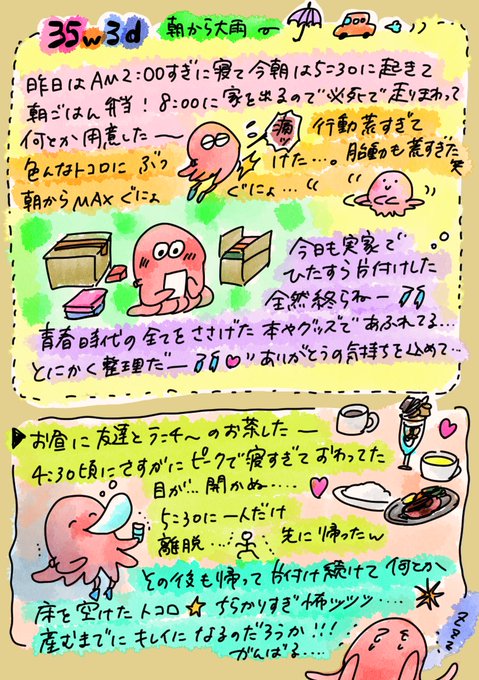 35w3d 朝から大雨〜
昨日はAM2:00すぎに寝て今朝は5:30に起きて
朝ごはん弁当！8:00に家を出るので必死で走りまわって
何とか用意した—
痛ッ
行動荒すぎて
色んなトコロに ぶつ
けた…。胎動も荒すぎた笑
朝からMAXぐにょ
ぐにょ…
今日も実家で
ひたすら片付けした
全然終らねー
青春時代の全てをささげた本やグッズであふれてる…
とにかく整理だー
ありがとうの気持ちを込めて…
▶お昼に友達とランチ〜のお茶した—
4:30頃にさすがにピークで寝すぎておわってた
目が…開かぬ…
5:30に一人だけ
離脱…
先に帰ったw
その後も帰って片付け続けて何とか
床を空けたトコロ☆ちらかりすぎ怖ッッッ…
産むまでにキレイになるのだろうか!!!
がんばる…
zzz